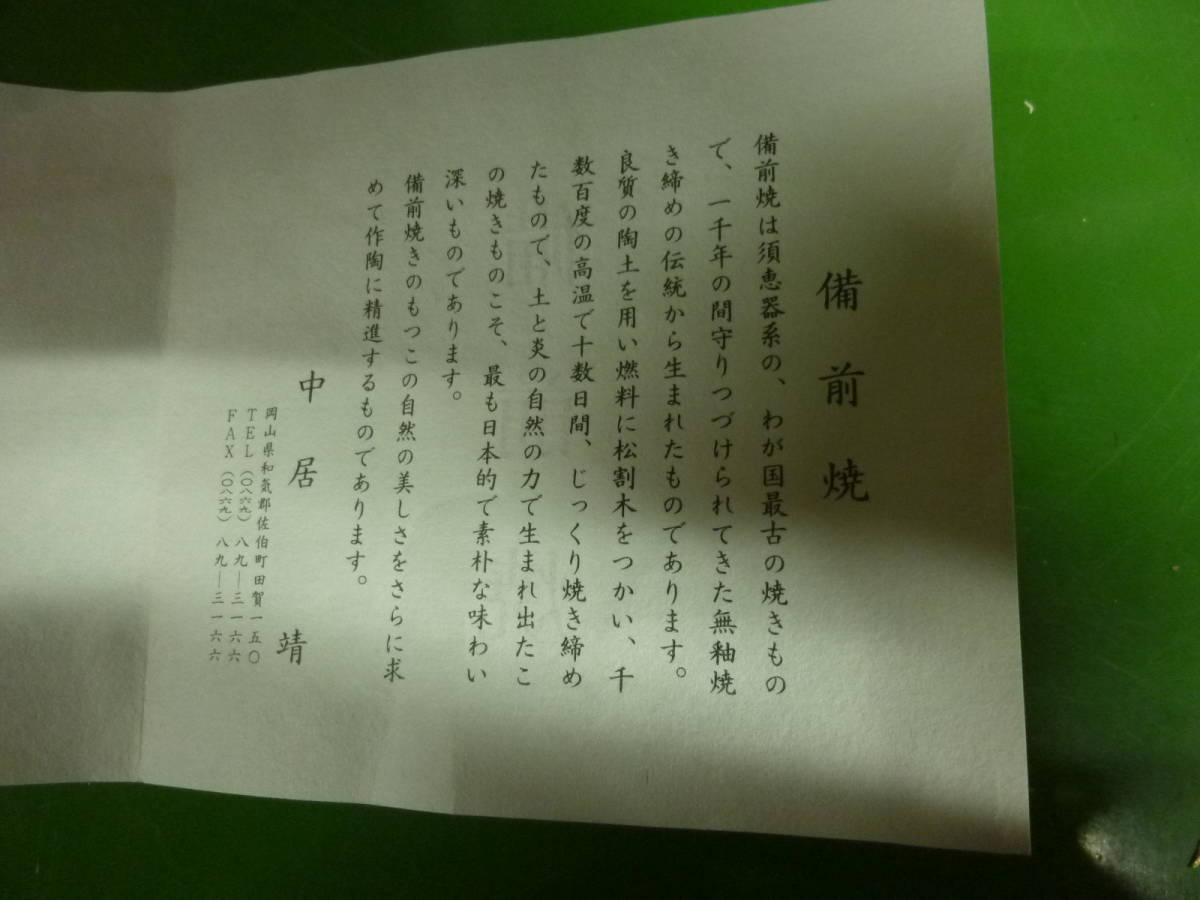 備前焼
備前焼は須恵器系の、わが国最古の焼きもの
で、一千年の間守りつづけられてきた無釉焼
き締めの伝統から生まれたものであります。
良質の陶土を用い燃料に松割木をつかい、千
数百度の高温で十数日間、じっくり焼き締め
たもので、土と炎の自然の力で生まれ出たこ
の焼きものこそ、最も日本的で素朴な味わい
深いものであります。
備前焼きのもつこの自然の美しさをさらに求
めて作陶に精進するものであります。
中居靖
岡山県和気郡佐伯町田賀一五〇
TEL(〇八六九)八九―三一六六
FAX(〇八六九)八九―三一六六